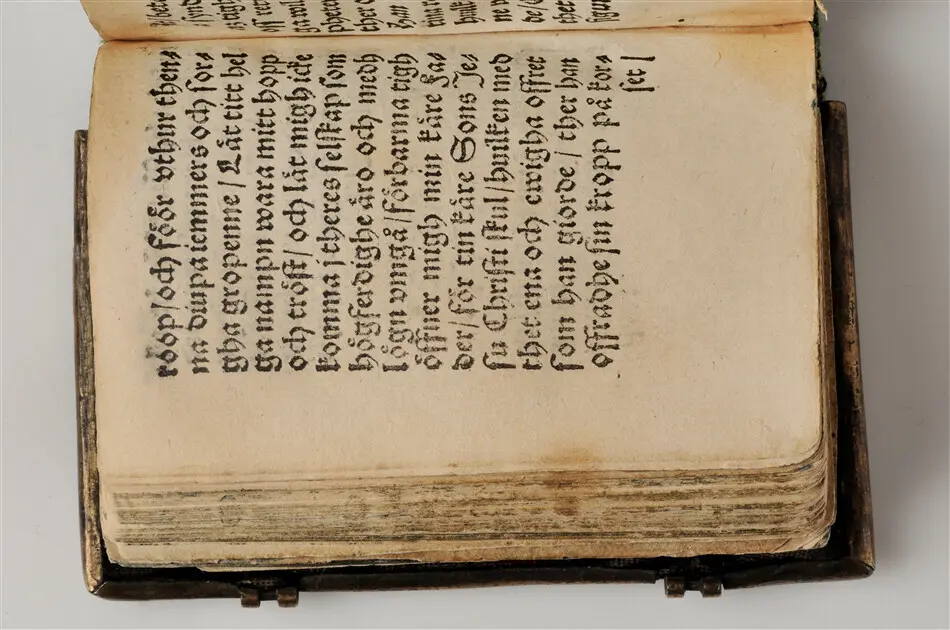 róóp/och föör vthur then⸗
na diupa iemmers och sor⸗
gha gropenne / Låt titt hel
ga nampn wara mitt hopp
och tröst/ och låt migh icke
komma j theres selskap som
högferdighe äro och medh
lögn vmgå/förbarma tigh
öffuer migh min käre Fa⸗
der/för tin käre Sons Je⸗
su Christi skul/huilken med
thet ena och ewigha offret
som han giorde/ ther han
offradhe sin kropp på kor⸗
set /